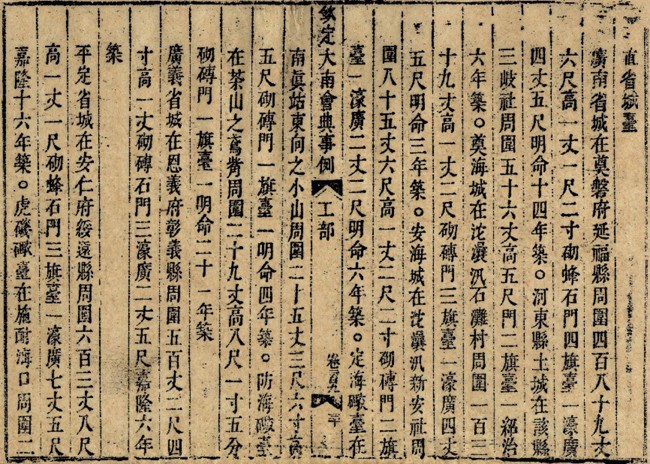 直省城臺
廣南省城在奠磐府延福縣周圍四百八十九丈
六尺高一丈一尺二寸砌蜂石門四旗臺一濠廣
四丈五尺明命十四年築○河東縣土城在該縣
三歧社周圍五十六丈高五尺門二旗臺一紹治
六年築○奠海城在沱㶞汛石灘村周圍一百三
十九丈高一丈二尺砌磚門三旗臺一濠廣四丈
五尺明命三年築○安海城在沱㶞汛新安社周
圍八十五丈六尺高一丈二尺二寸砌磚門二旗
臺一濠廣二丈二尺明命六年築○定海礮臺在
欽定大南會典事例 工部
南眞站東向之小山周圍二十五丈三尺六寸高
五尺砌磚門一旗臺一明命四年築○防海礮臺
在茶山之嵩背周圍二十九丈高八尺一寸五分
砌磚門一旗臺一明命二十一年築
廣義省城在恩義府彰義縣周圍五百丈二尺四
寸高一丈砌磚石門三濠廣二丈五尺嘉隆六年
築
平定省城在安仁府綏遠縣周圍六百三丈八尺
高一丈一尺砌蜂石門三旗臺一濠廣七丈五尺
嘉隆十六年築○虎磯礮臺在施耐海口周圍二